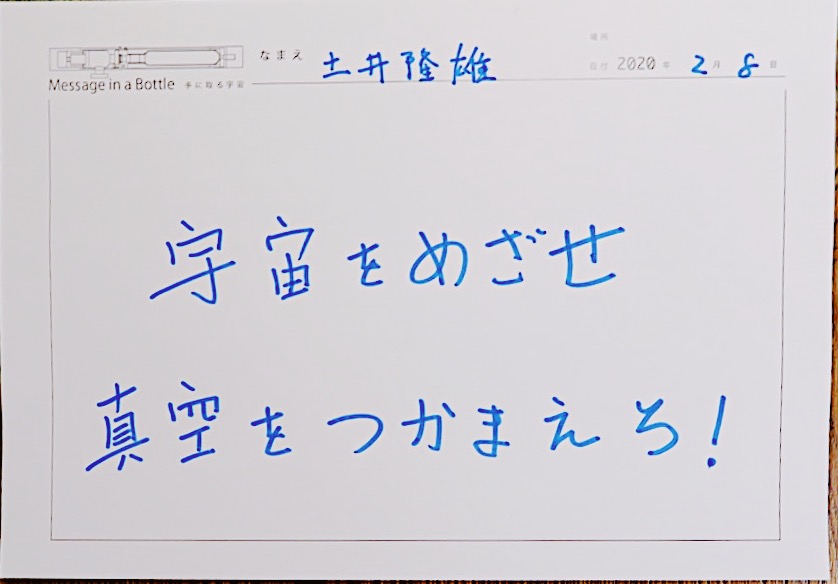 なまえ 土井隆雄
場所
日付 2020年 2月 8日
Message in a Bottle 手に取る宇宙
宇宙をめざせ
真空をつかまえろ!